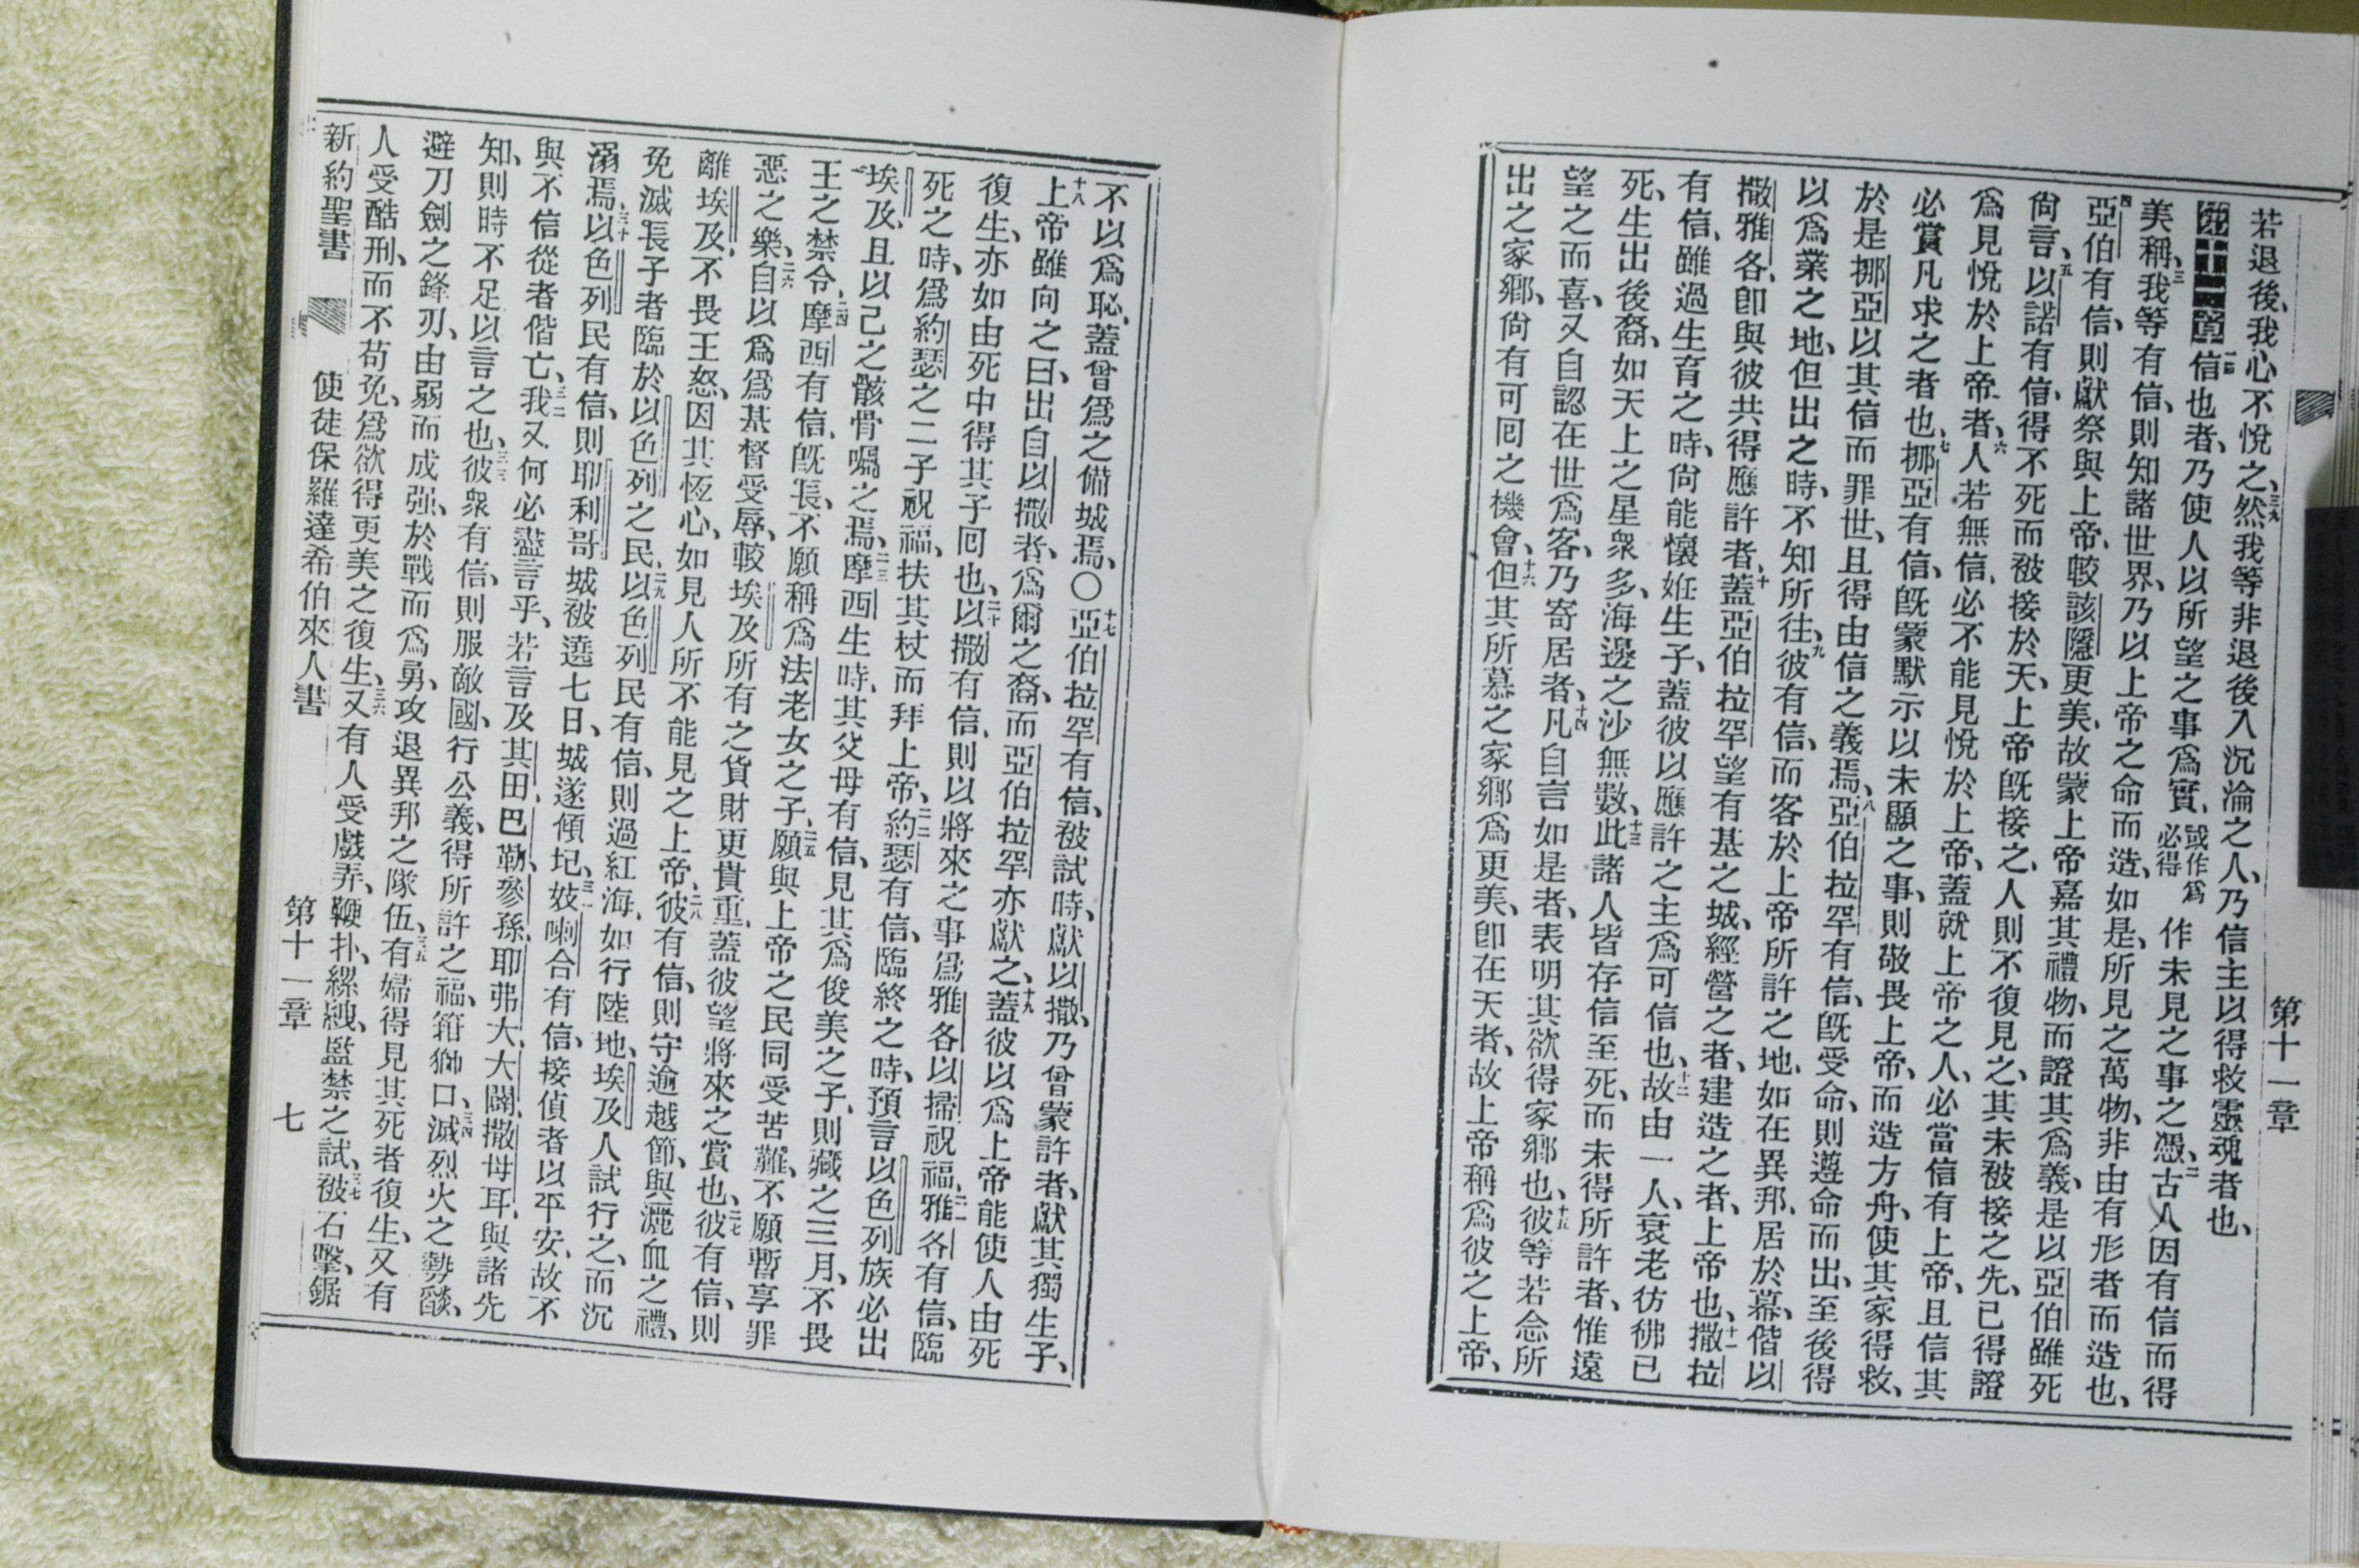 第十一章
若退後、我心不悅之、三九然我等非退後入沉淪之人、乃信主以得救靈魂者也、
第十一章 一信也者、乃使人以所望之事爲實、或作爲必得作未見之事之憑、二古人因有信而得
美稱、三我等有信、則知諸世界、乃以上帝之命而造、如是、所見之萬物、非由有形者而造也、
四亞伯有信、則獻祭與上帝、較該隱更美、故蒙上帝嘉其禮物、而證其爲義、是以亞伯雖死
尙言、五以諾有信、得不死而被接於天、上帝旣接之、人則不復見之、其未被接之先、已得證
爲見悅於上帝者、六人若無信、必不能見悅於上帝、蓋就上帝之人、必當信有上帝、且信其
必賞凡求之者也、七挪亞有信、旣蒙默示以未顯之事、則敬畏上帝、而造方舟、使其家得救、
於是挪亞以其信而罪世、且得由信之義焉、八亞伯拉罕有信、旣受命、則遵命而出、至後得
以爲業之地、但出之時、不知所往、九彼有信、而客於上帝所許之地、如在異邦、居於幕、偕以
撒雅各、卽與彼共得應許者、十蓋亞伯拉罕望有基之城、經營之者、建造之者、上帝也、十一撒拉
有信、雖過生育之時、尙能懷姙生子、蓋彼以應許之主爲可信也、十二故由一人、衰老彷彿已
死、生出後裔、如天上之星衆多、海邊之沙無數、十三此諸人皆存信至死、而未得所許者、惟遠
望之而喜、又自認在世爲客、乃寄居者、十四凡自言如是者、表明其欲得家鄉也、十五彼等若念所
出之家鄉、尙有可囘之機會、十六但其所慕之家鄉爲更美、卽在天者、故上帝稱爲彼之上帝、
不以爲恥、蓋曾爲之備城焉、〇十七亞伯拉罕有信、被試時、獻以撒、乃曾蒙許者、獻其獨生子、
十八上帝雖向之曰、出自以撒者、爲爾之裔、而亞伯拉罕亦獻之、十九蓋彼以爲上帝能使人由死
復生、亦如由死中得其子囘也、二十以撒有信、則以將來之事爲雅各以掃祝福、二一雅各有信、臨
死之時、爲約瑟之二子祝福、扶其杖而拜上帝、二二約瑟有信、臨終之時、預言以色列族必出
埃及、且以己之骸骨囑之焉、二三摩西生時、其父母有信、見其爲俊美之子、則藏之三月、不畏
王之禁令、二四摩西有信、旣長、不願稱爲法老女之子、二五願與上帝之民同受苦難、不願暫享罪
惡之樂、二六自以爲爲基督受辱、較埃及所有之貨財更貴重、蓋彼望將來之賞也、二七彼有信、則
離埃及、不畏王怒、因其恆心、如見人所不能見之上帝、二八彼有信、則守逾越節、與灑血之禮、
免滅長子者臨於以色列之民、二九以色列民有信、則過紅海、如行陸地、埃及人試行之、而沉
溺焉、三十以色列民有信、則耶利哥城被遶七日、城遂傾圮、三一妓喇合有信、接偵者以平安、故不
與不信從者偕亡、三二我又何必盡言乎、若言及其田、巴勒、參孫、耶弗大、大闢、撒母耳、與諸先
知、則時不足以言之也、三三彼衆有信、則服敵國、行公義、得所許之福、箝獅口、三四滅烈火之勢燄、
避刀劍之鋒刃、由弱而成强、於戰而爲勇、攻退異邦之隊伍、三五有婦得見其死者復生、又有
人受酷刑、而不苟免、爲欲得更美之復生、三六又有人受戲弄、鞭扑、縲絏、監禁之試、三七被石擊、鋸
新約聖書 使徒保羅達希伯來人書 第十一章 七